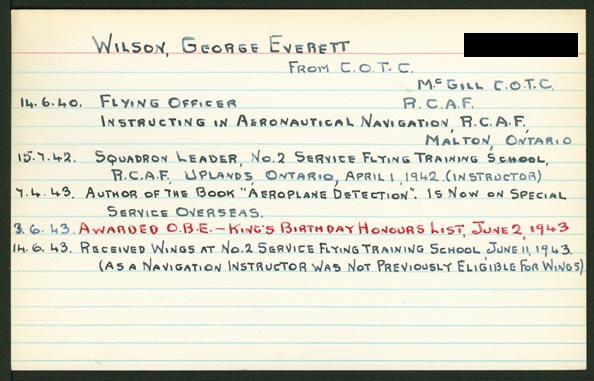 WILSON, GEORGE EVERETT
FROM C.O.T.C.
McGILL C.O.T.C.
14.6.40. FLYING OFFICER R.C.A.F.
INSTRUCTING IN AERONAUTICAL NAVIGATION, R.C.A.F.,
MALTON, ONTARIO
15.7.42. SQUADRON LEADER, NO.2 SERVICE FLYING TRAINING SCHOOL,
R.C.A.F. UPLANDS, ONTARIO, APRIL 1, 1942. (INSTRUCTOR)
7.4.43. AUTHOR OF THE BOOK "AEROPLANE DETECTION". IS NOW ON SPECIAL
SERVICE OVERSEAS.
3.6.43. AWARDED O.B.E. – KING'S BIRTHDAY HONOURS LIST, JUNE 2, 1943
14.6.43. RECEIVED WINGS AT NO.2 SERVICE FLYING TRAINING SCHOOL, JUNE 11, 1943.
(AS A NAVIGATION INSTRUCTOR WAS NOT PREVIOUSLY ELIGIBLE FOR WINGS)